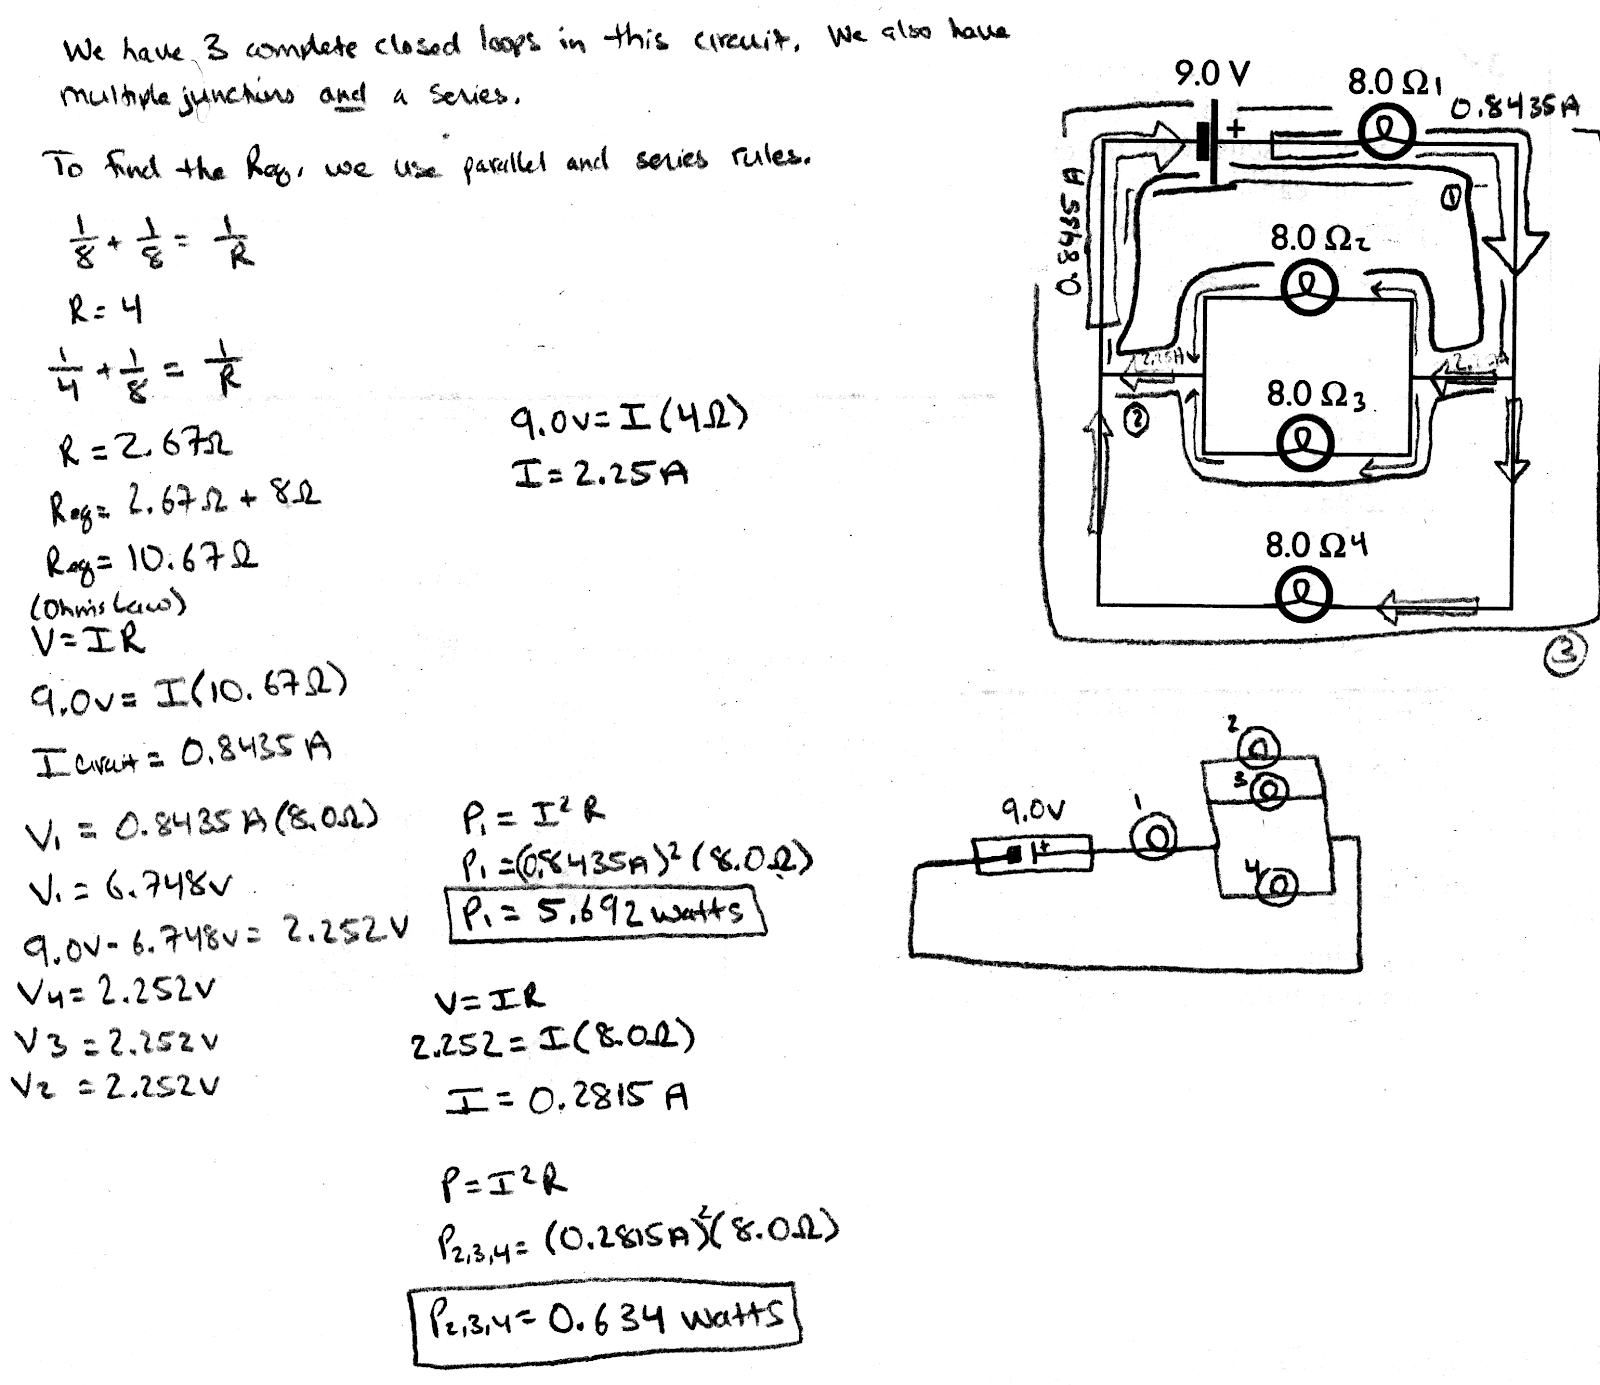 We have 3 complete closed loops in this circuit. We also have
multiple junctions and a series.
To find the Req, we use parallel and series rules.
1/8 + 1/8 = 1/R
R = 4
1/4 + 1/8 = 1/R
R = 2.67Ω
Req = 2.67Ω + 8Ω
Req = 10.67Ω
(Ohm's Law)
V = IR
9.0v = I(10.67Ω)
I circuit = 0.8435 A
V1 = 0.8435 A (8.0Ω)
V1 = 6.748v
9.0v - 6.748v = 2.252v
V4 = 2.252v
V3 = 2.252v
V2 = 2.252v
9.0v = I(4Ω)
I = 2.25A
P1 = I² R
P1 = (0.8435A)² (8.0Ω)
P1 = 5.692 watts
V = IR
2.252 = I(8.0Ω)
I = 0.2815 A
P = I²R
P2,3,4 = (0.2815A)² (8.0Ω)
P2,3,4 = 0.634 watts
9.0 V
+
8.0 Ω1
0.8435A
0.8435 A
1
8.0 Ω2
2.25A
8.0 Ω3
2
8.0 Ω4
3
9.0v
+
1
2
3
4